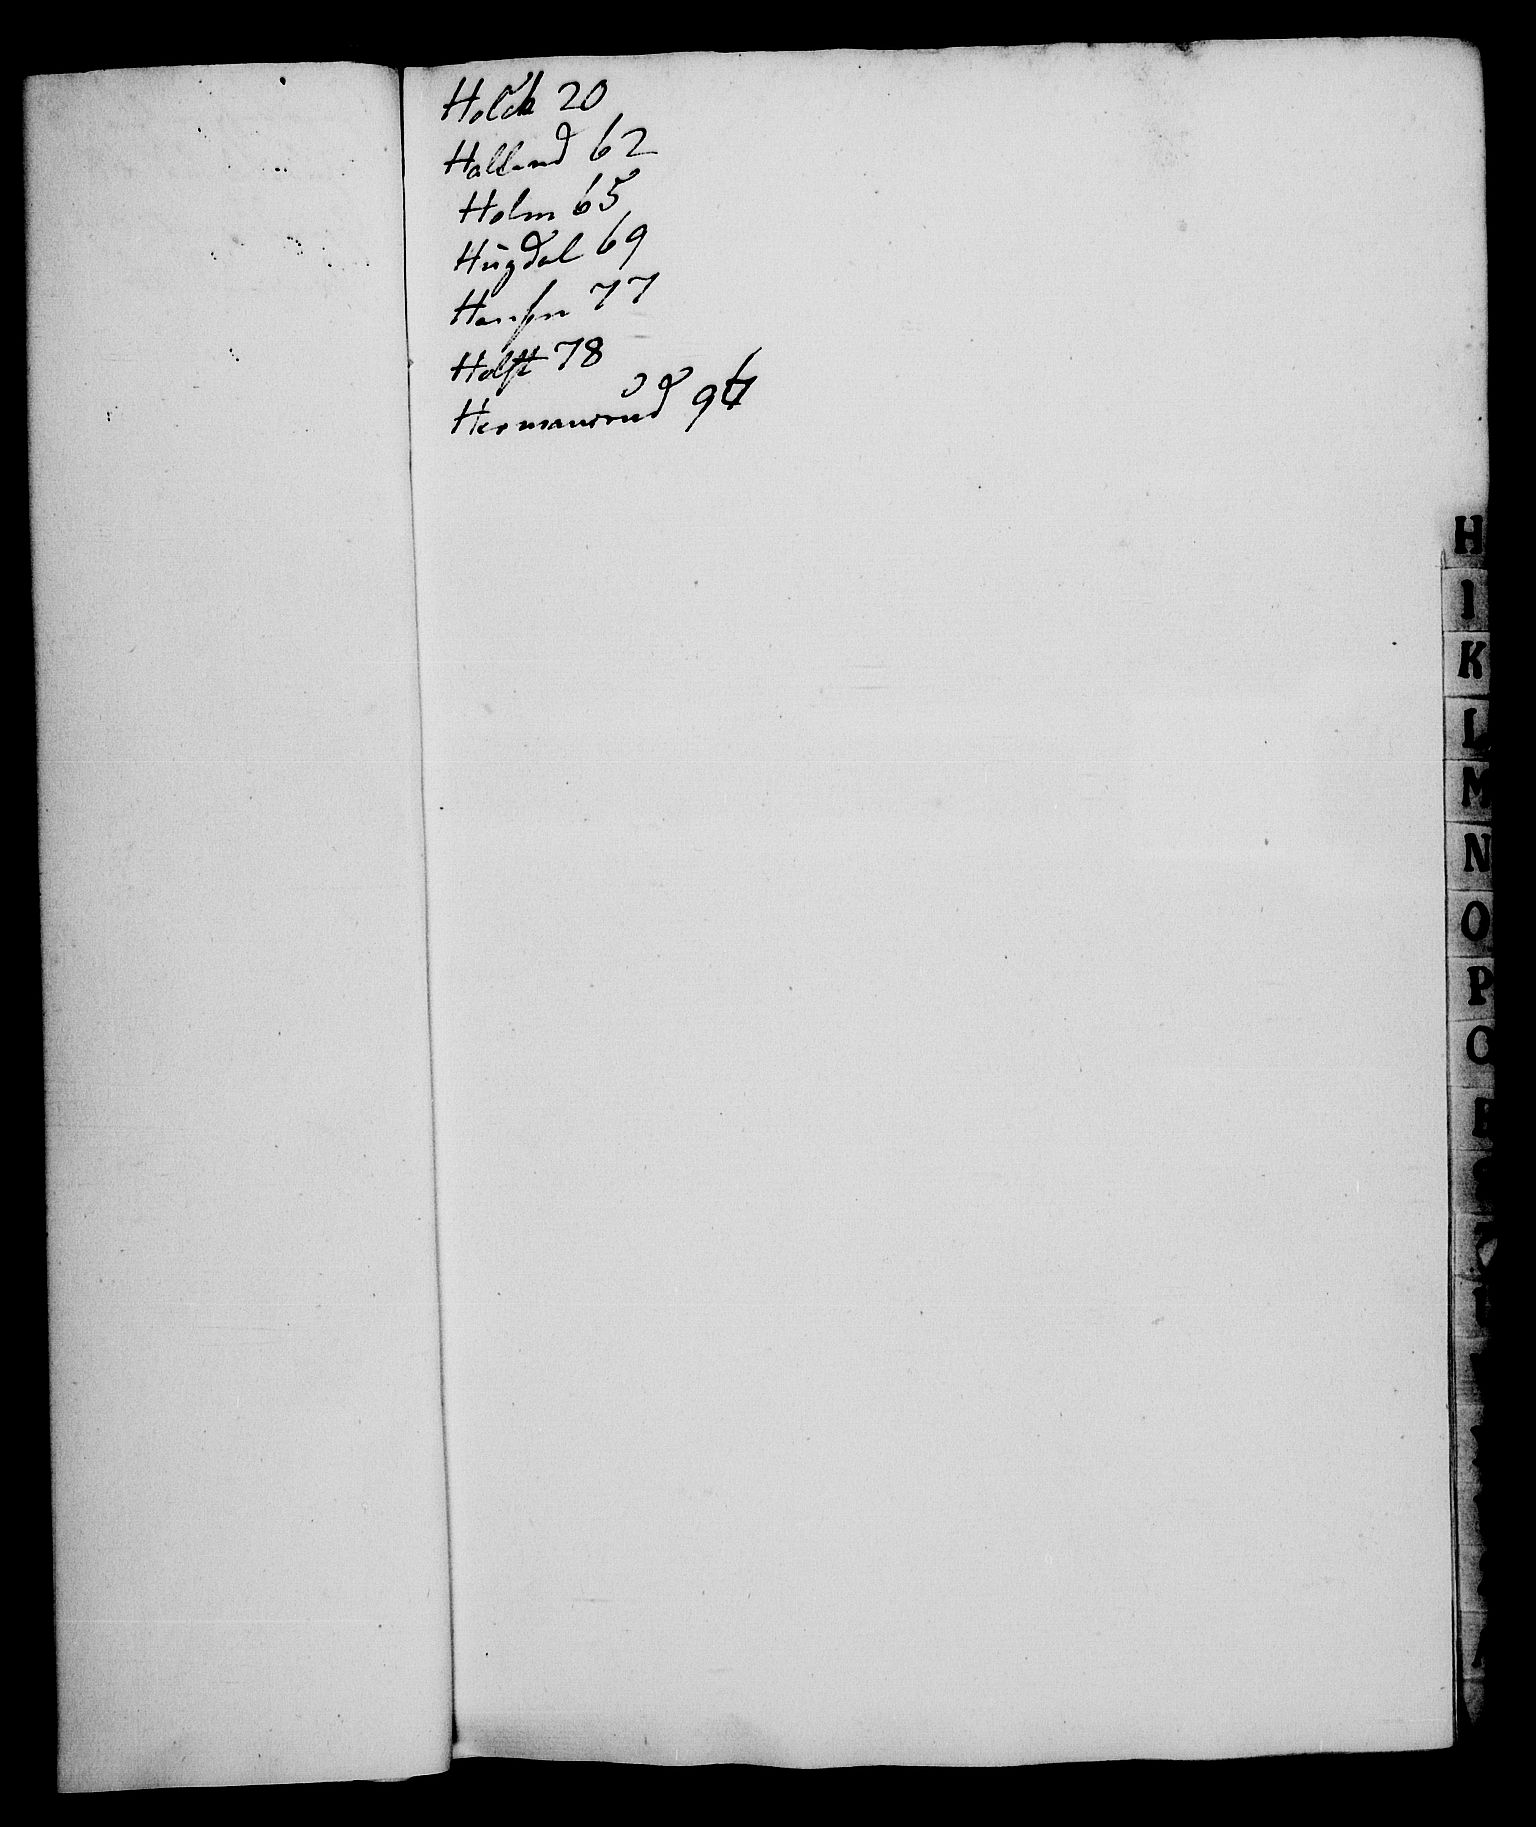 Holck 20
Halland 62
Holm 65
Hugdal 69
Hansen 77
Holst 78
Hermansrud
H
I
K
L
M
N
O
P